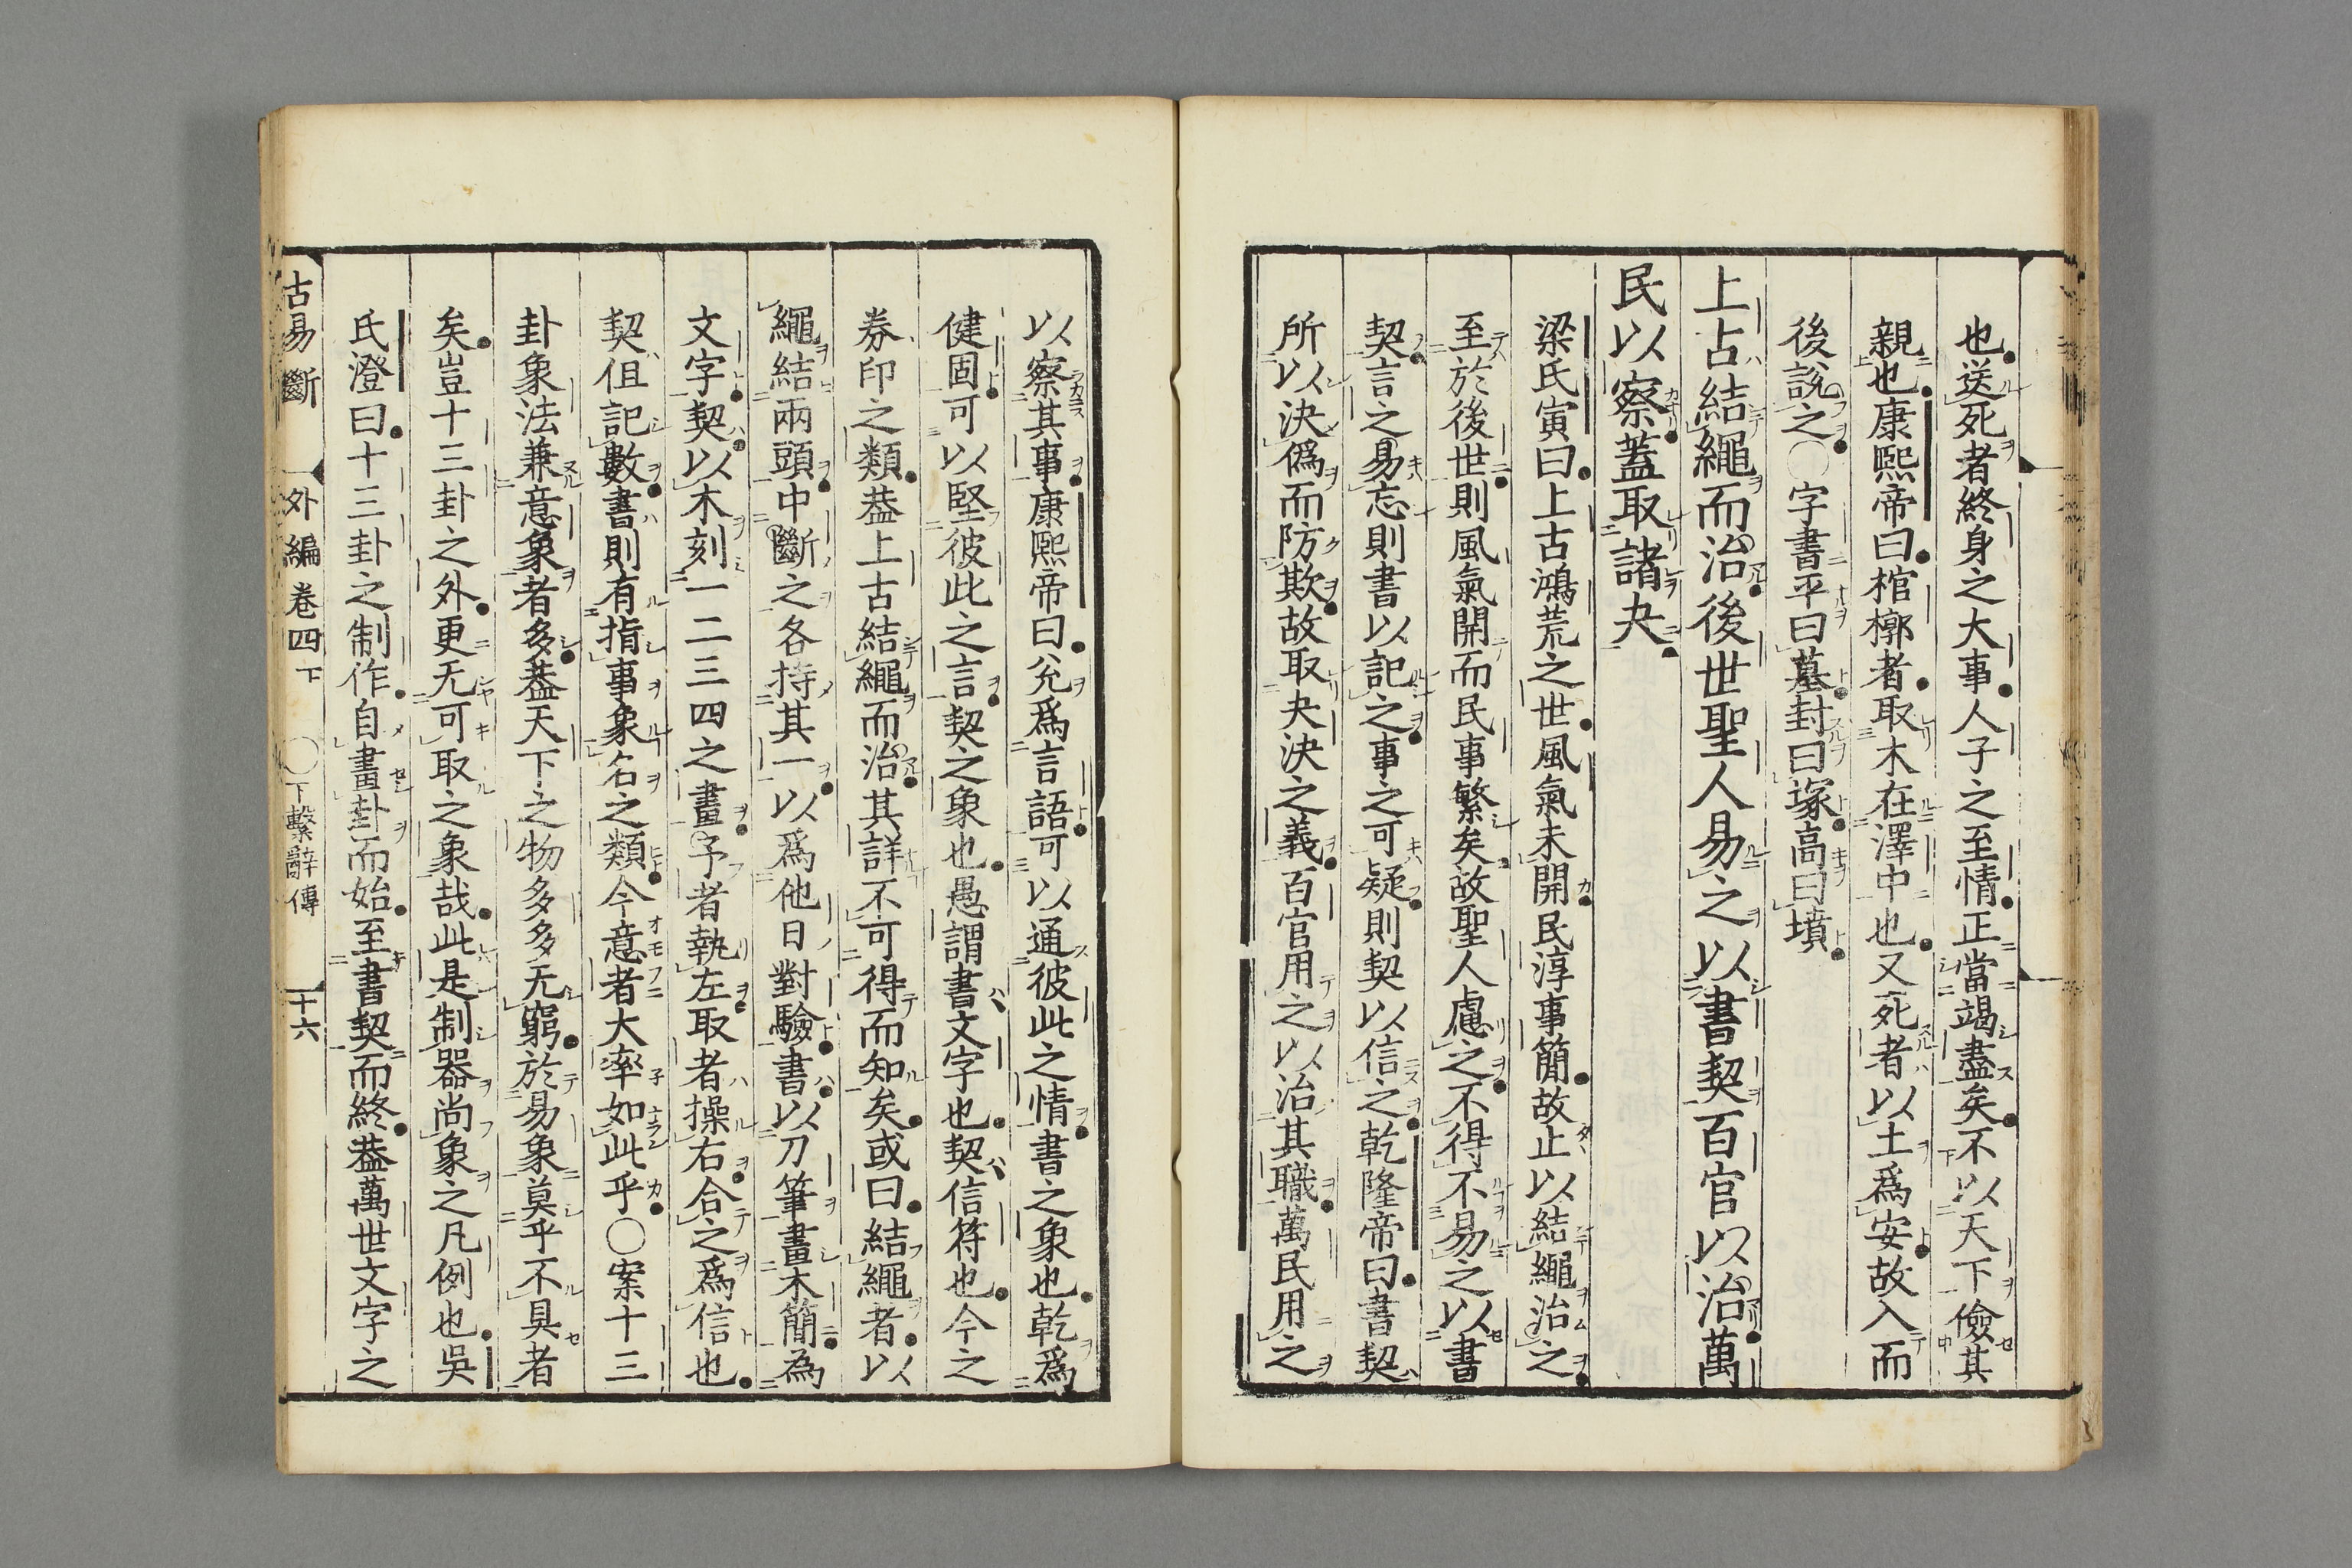 也送死者終身之大事人子之至情正當竭盡矣不以天下儉其
親也康熙帝曰棺槨者取木在澤中也又死者以土爲安故入而
後說之○字書平曰墓封曰塚高曰墳
上古結繩而治後世聖人易之以書契百官以治萬
民以察蓋取諸夬
梁氏寅曰上古鴻荒之世風氣未開民淳事簡故止以結繩治之
至於後世則風氣開而民事繁矣故聖人慮之不得不易之以書
契言之易忘則書以記之事之可疑則契以信之乾隆帝曰書契
所以決僞而防欺故取夬決之義百官用之以治其職萬民用之
以察其事康熙帝曰兊爲言語可以通彼此之情書之象也乾爲
健固可以堅彼此之言契之象也愚謂書文字也契信符也今之
券印之類葢上古結繩而治其詳不可得而知矣或曰結繩者以
繩結兩頭中斷之各持其一以爲他日對驗書以刀筆畫木簡為
文字契以木刻一二三四之畫予者執左取者操右合之爲信也
契伹記數書則有指事象名之類今意者大率如此乎○案十三
卦象法兼意象者多葢天下之物多多无窮於易象莫乎不具者
矣豈十三卦之外更无可取之象哉此是制器尚象之凡例也吳
氏澄曰十三卦之制作自畫卦而始至書契而終葢萬世文字之
古易斷 外編卷四下 ○下繫辭傳 十六